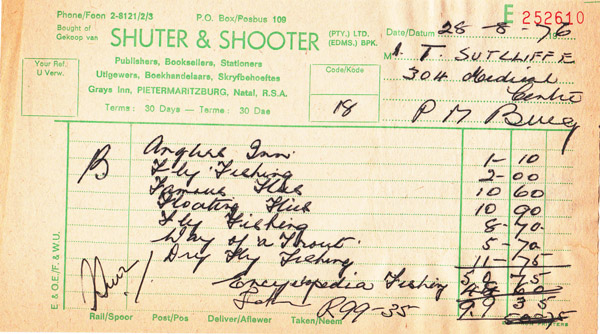 Phone/Foon 2-8121/2/3 P.O. Box/Posbus 109
E 252610
Bought of
Gekoop van
SHUTER & SHOOTER (PTY.) LTD.
(EDMS.) BPK.
Date/Datum 28-8-76
M T SUTCLIFFE
304 Medical
Centre
P M Burg
Your Ref.
U Verw.
Publishers, Booksellers, Stationers
Uitgewers, Boekhandelaars, Skryfbehoeftes
Grays Inn, PIETERMARITZBURG, Natal, R.S.A.
Terms: 30 Days — Terme: 30 Dae
Code/Kode
18
B
Anglers Inn 1-10
Fly Fishing 2-00
Famous Flies 10 60
Floating Flies 10 90
Fly Fishing 8-70
Way of a Trout 5-70
Dry Fly Fishing 11-75
50 75
Encyclopedia Fishing 48 60
R99-35 99 35
E. & O.E./F. & W.U.
Rail/Spoor Post/Pos Deliver/Aflewer Taken/Neem